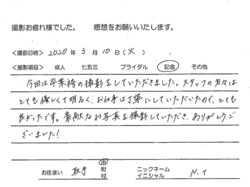 撮影お疲れ様でした。　感想をお願いいたします。
撮影日時 2020年3月10日(火)
撮影項目 成人 七五三 ブライダル 記念 その他
今回は卒業時の撮影をしていただきました。スタッフの方々は
とても優しくて明るく、お仕事は丁寧にしていただいたので、とても
良かったです。素敵なお写真を撮影していただき、ありがとうご
ざいました!
お住まい 町 村 ニックネーム イニシャル N.I